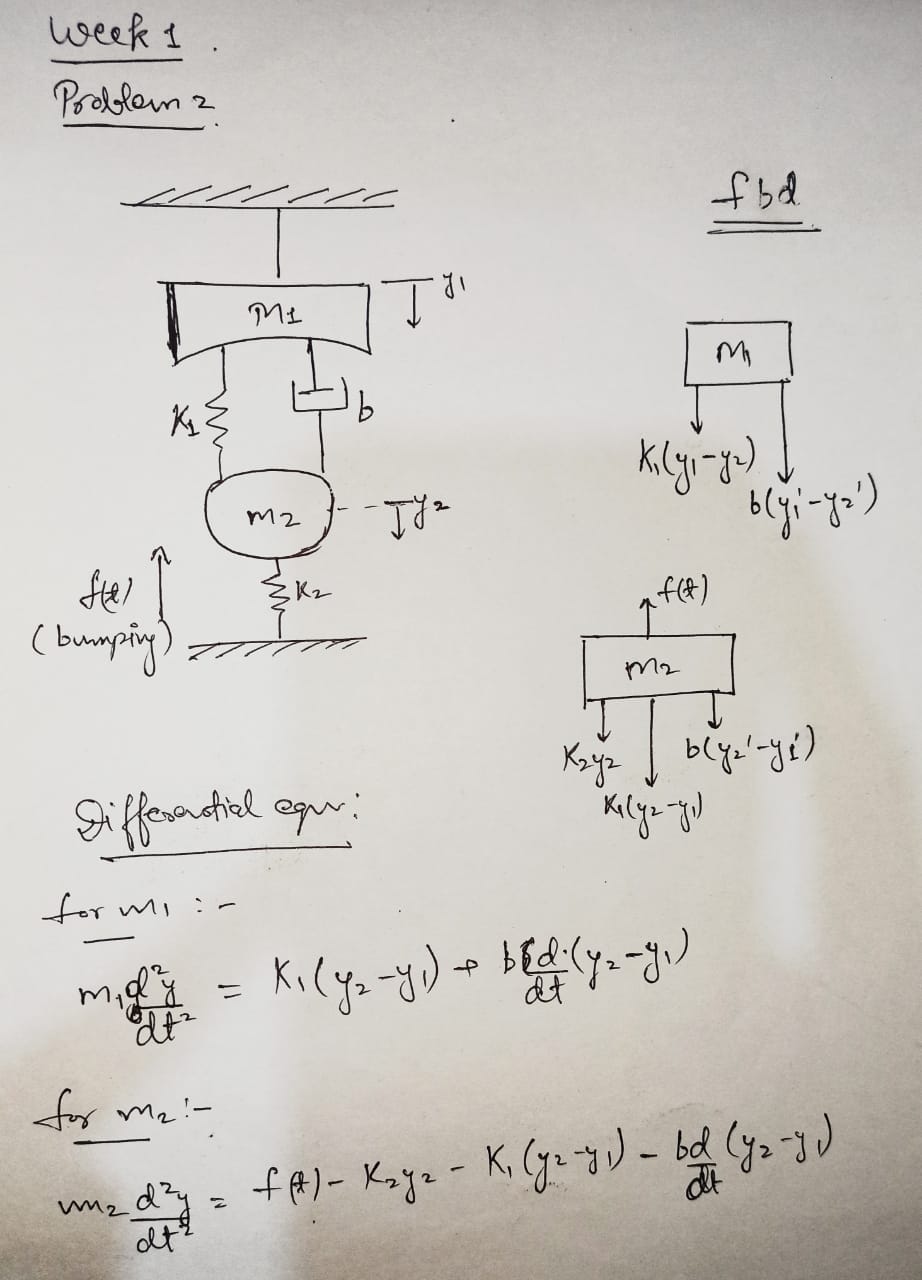 Week 1.
Problem 2
fbd
M1
y1
K1
b
m2
y2
f(t)
(bumping)
K2
m1
K1(y1-y2)
b(y1'-y2')
f(t)
m2
K2y2
b(y2'-y1')
K1(y2-y1)
Differential eqn:
for m1 :-
m1 d²y/dt² = K1(y2-y1) + b d/dt (y2-y1)
for m2:-
m2 d²y/dt² = f(t) - K2y2 - K1(y2-y1) - bd/dt (y2-y1)